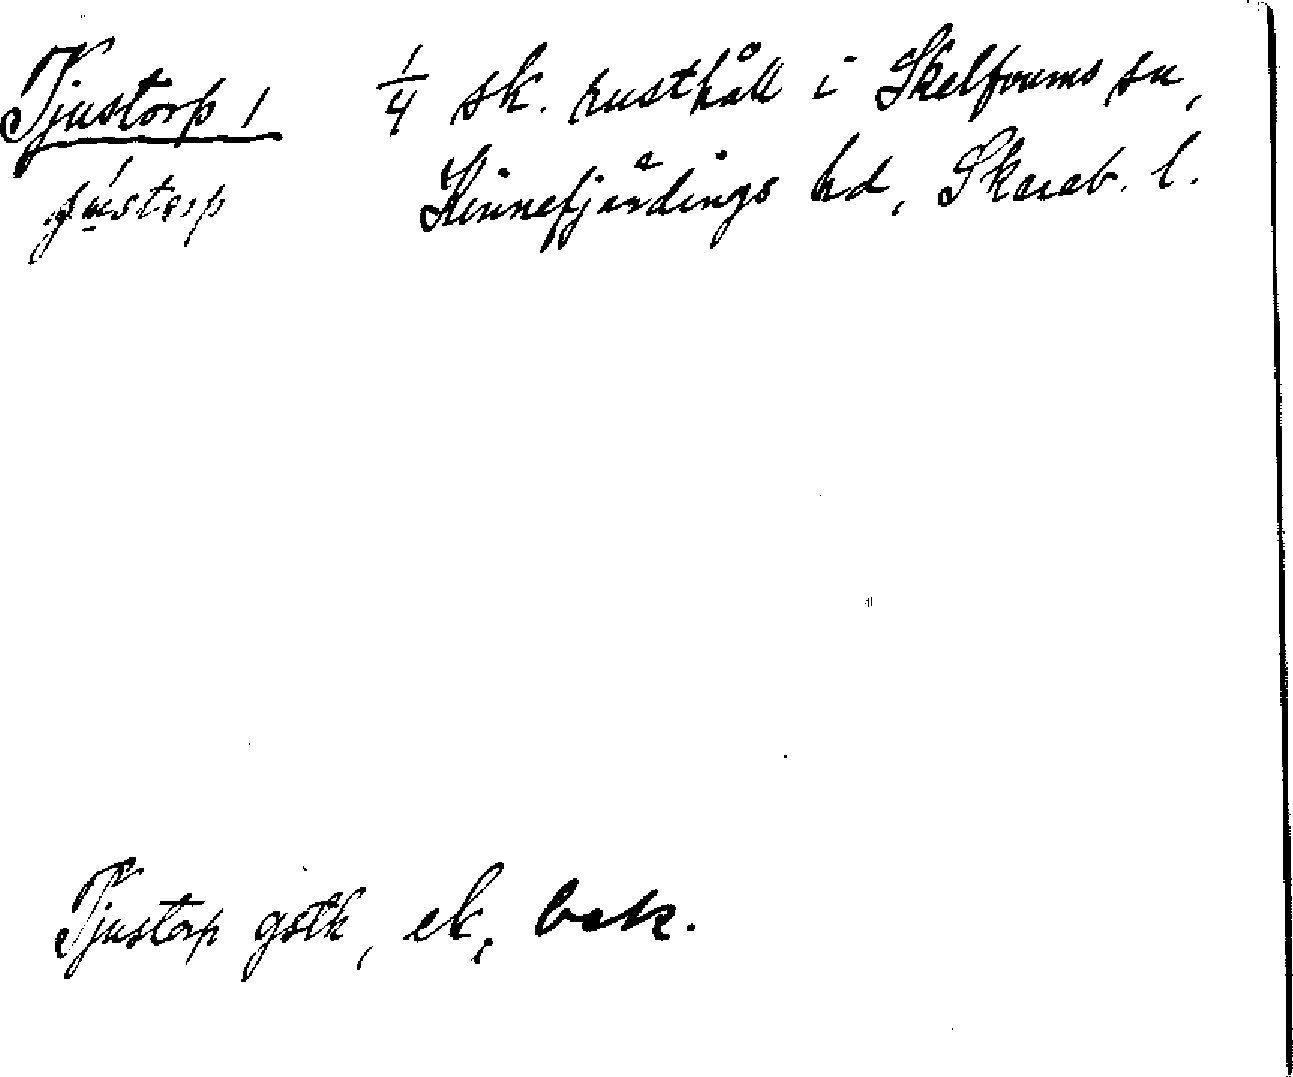 Tjustorp 1 1/4 sk. rusthåll i Skelfvums sn,
Kinnefjärdings hd, Skarab. l.
Tjustorp gstk, ek,